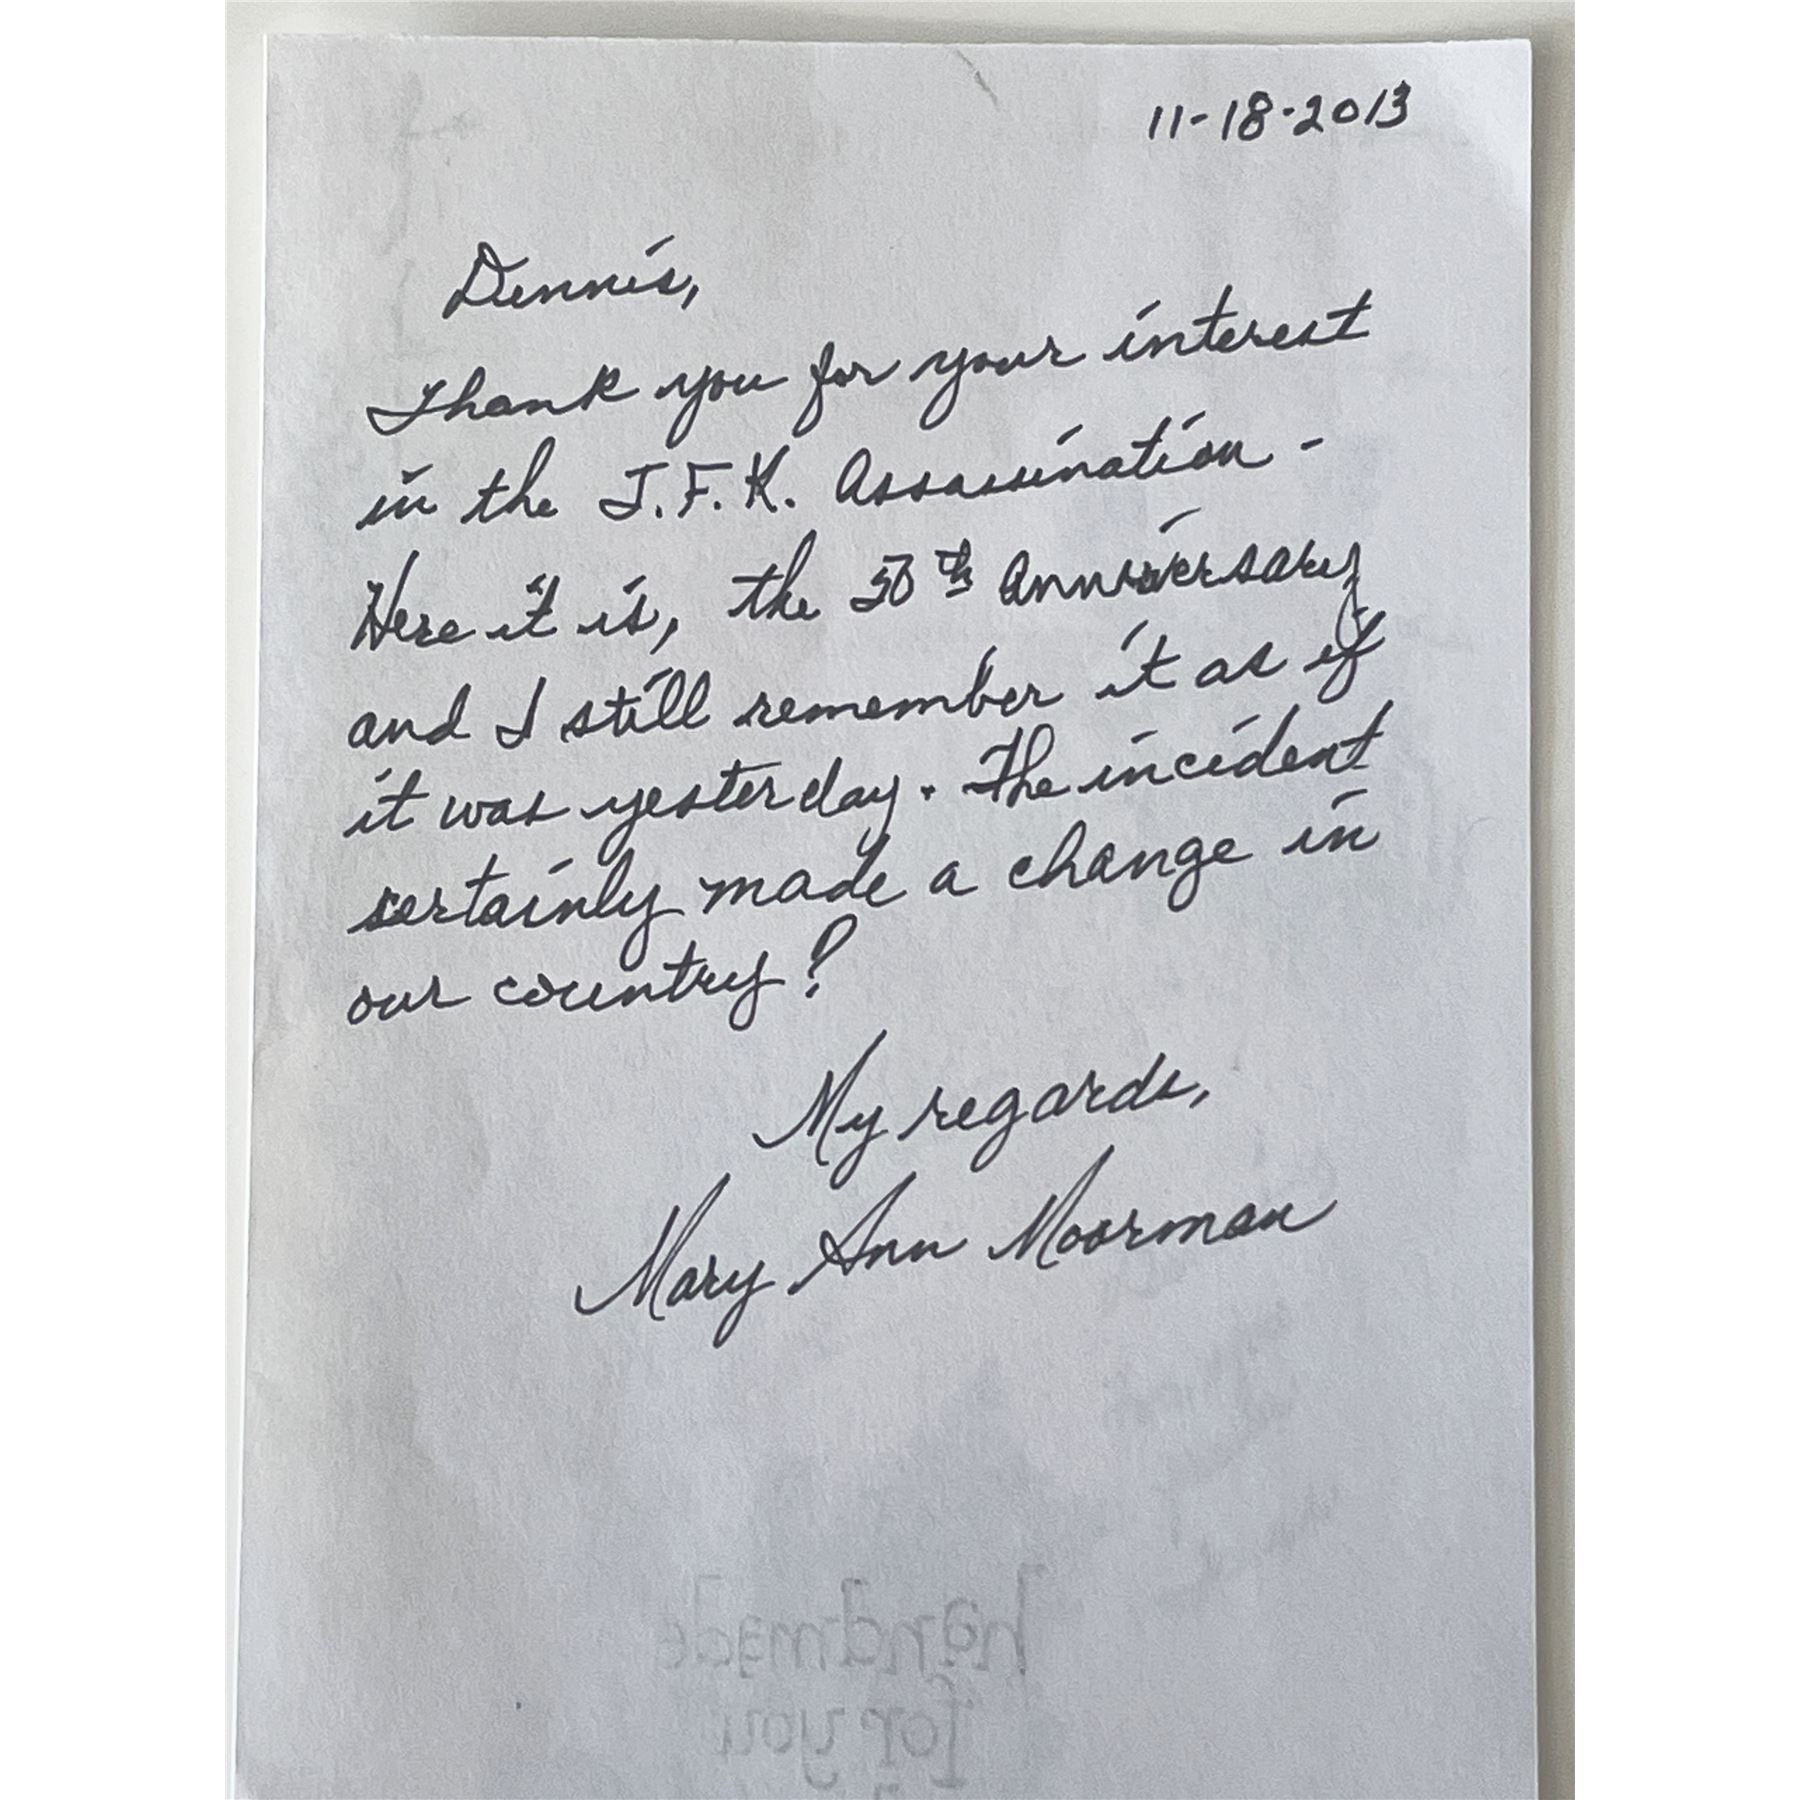 11-18-2013
Dennis,
Thank you for your interest
in the J.F.K. Assassination -
Here it is, the 50th Anniversary
and I still remember it as if
it was yesterday. The incident
certainly made a change in
our country!
My regards,
Mary Ann Moorman
handmade
for you